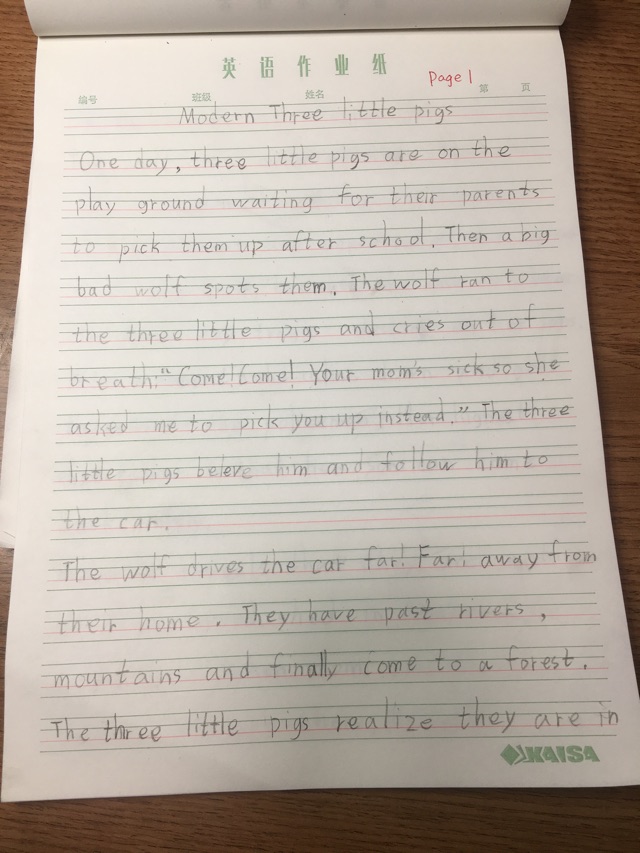 英语作业纸
Page 1
编号 班级 姓名 第 页
Modern Three little pigs
One day, three little pigs are on the
play ground waiting for their parents
to pick them up after school. Then a big
bad wolf spots them. The wolf ran to
the three little pigs and cries out of
breath:"Come! Come! Your mom's sick so she
asked me to pick you up instead." The three
little pigs beleve him and follow him to
the car.
The wolf drives the car far! Far! away from
their home. They have past rivers,
mountains and finally come to a forest.
The three little pigs realize they are in
KAISA